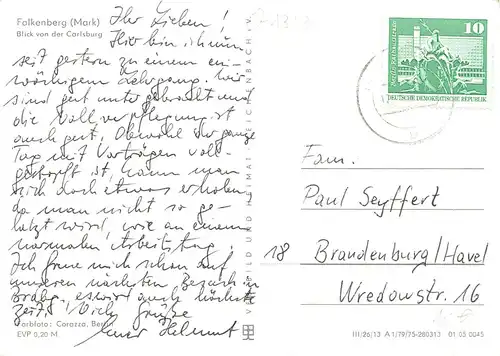 Falkenberg (Mark)
Blick von der Carlsburg
Ihr Lieben!
Hier bin ich nun
seit gestern zu einem ein-
wöchigen Lehrgang. Wir
sind gut untergebracht und
die Vollverpflegung ist
auch gut. Obwohl der ganze
Tag mit Vorträgen voll-
gestopft ist, kann man
sich doch etwas erholen
da man nicht so ge-
hetzt wird, wie an einem
normalen Arbeitstag.
Ich freue mich schon auf
unseren nächsten Besuch in
Brdbg. es wird auch höchste
Zeit! Viele Grüße
Euer Helmut
Farbfoto: Corazza, Berlin
EVP 0,20 M
VEB BILD UND HEIMAT REICHENBACH i. V.
10
DEUTSCHE DEMOKRATISCHE REPUBLIK
Fam.
Paul Seyffert
18 Brandenburg/Havel
Wredowstr. 16
III/26/13 A 1/79/75-280313 01 03 0045